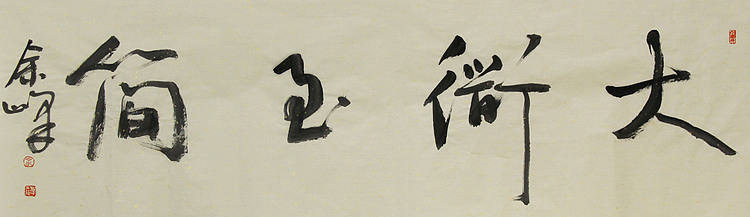 大衜至简
余峰